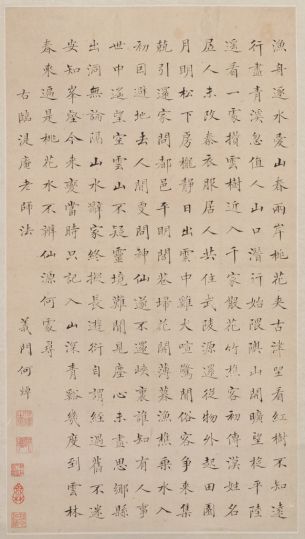 漁舟逐水愛山春兩岸桃花夾古津坐看紅樹不知遠
行盡青溪忽值人山口潛行始隈隩山開曠望旋平陸
遙看一處攢雲樹近入千家散花竹樵客初傳漢姓名
居人未改秦衣服居人共住武陵源還從物外起田園
月明松下房櫳靜日出雲中雞犬喧驚聞俗客爭來集
競引還家問都邑平明閭巷掃花開薄暮漁樵乘水入
初因避地去人間更問神仙遂不還峽裏誰知有人事
世中遙望空雲山不疑靈境難聞見塵心未盡思鄉縣
出洞無論隔山水辭家終擬長遊衍自謂經過舊不迷
安知峯壑今來變當時只記入山深青谿幾度到雲林
春來遍是桃花水不辨仙源何處尋
右臨汲庵老師法
義門何焯